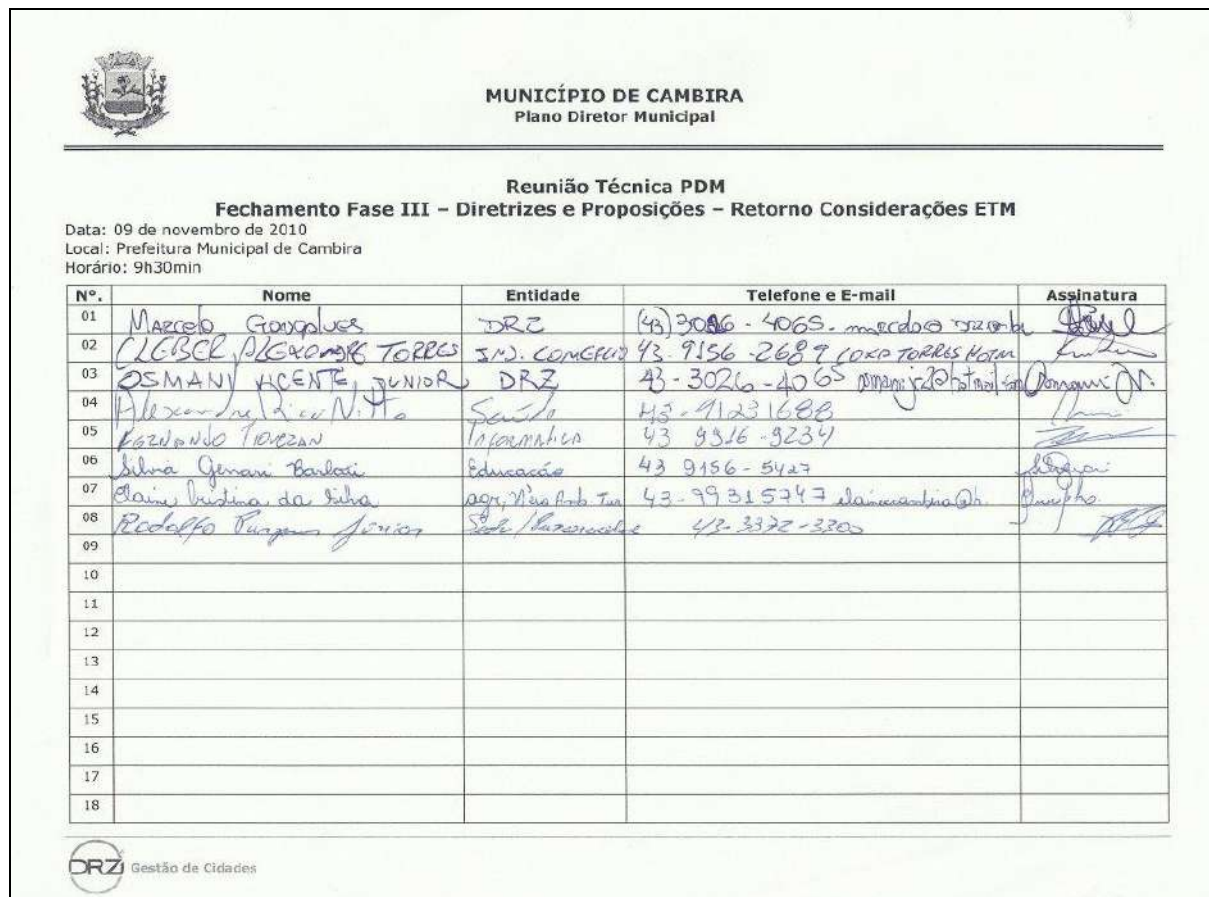 MUNICÍPIO DE CAMBIRA
Plano Diretor Municipal
Reunião Técnica PDM
Fechamento Fase III – Diretrizes e Proposições – Retorno Considerações ETM
Data: 09 de novembro de 2010
Local: Prefeitura Municipal de Cambira
Horário: 9h30min
Nº. Nome Entidade Telefone e E-mail Assinatura
01 Marcelo Gonçalves DRZ (43) 3026-4065.
02 CLEBER ALEXANDRE TORRES IND. COMERCIO 43-9156-2689 TORRES HOTM
03 OSMANI VICENTE JUNIOR DRZ 43-3026-4065 Osmani Jr.
04 Alexandre Saúde 43-91231688
05 FERNANDO Informatica 43 9916-9234
06 Silvia Genari Barbosi Educacão 43 9156-5427
07 Elaine Cristina da Silva agr, Meio Amb. Tur 43-99315747
08 Rodolfo Júnior 43-3372-3300
09
10
11
12
13
14
15
16
17
18
DRZ Gestão de Cidades